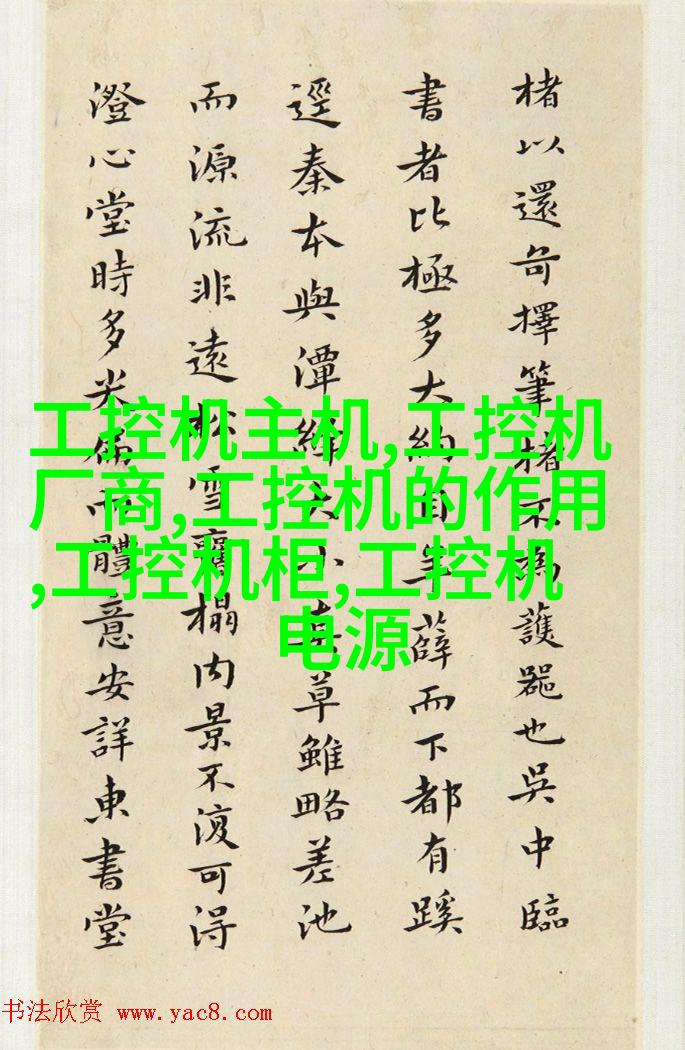 楮以還擇筆楮不為護器也吳中臨
書者比極多大約自羊薛而下都有蹊
逕秦本與潭絳大小真草雖略差池
而源流非遠松雪舊榻内景不復可得
澄心堂時多米體意安詳東書堂
工控机主机,工控机
厂商,工控机的作用
,工控机柜,工控机
电源
书法欣赏 www.yac8.com